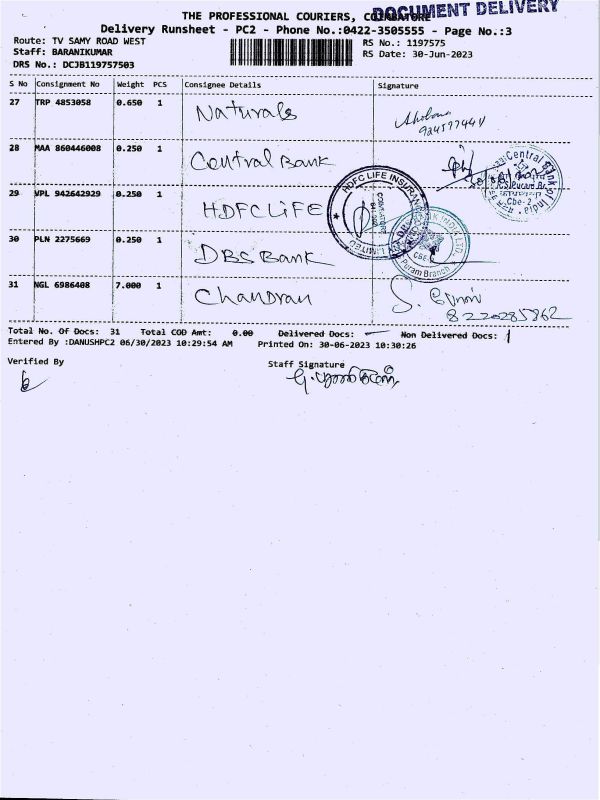 DOCUMENT DELIVERY
THE PROFESSIONAL COURIERS, COIMBATORE
Delivery Runsheet - PC2 - Phone No.:0422-3505555 - Page No.:3
Route: TV SAMY ROAD WEST RS No.: 1197575
Staff: BARANIKUMAR RS Date: 30-Jun-2023
DRS No.: DCJB119757503
S No Consignment No Weight PCS Consignee Details Signature
27 TRP 4853058 0.650 1 Naturals
28 MAA 860446008 0.250 1 Central Bank
Central Bank of India
Cbe-2
29 VPL 942642929 0.250 1 HDFC LIFE
HDFC LIFE INSURANCE
LIMITED
30 PLN 2275669 0.250 1 DBS Bank
CBE
Puram Branch
31 NGL 6986408 7.000 1 Chandran
8220285862
Total No. Of Docs: 31 Total COD Amt: 0.00 Delivered Docs: Non Delivered Docs: 1
Entered By :DANUSHPC2 06/30/2023 10:29:54 AM Printed On: 30-06-2023 10:30:26
Verified By Staff Signature